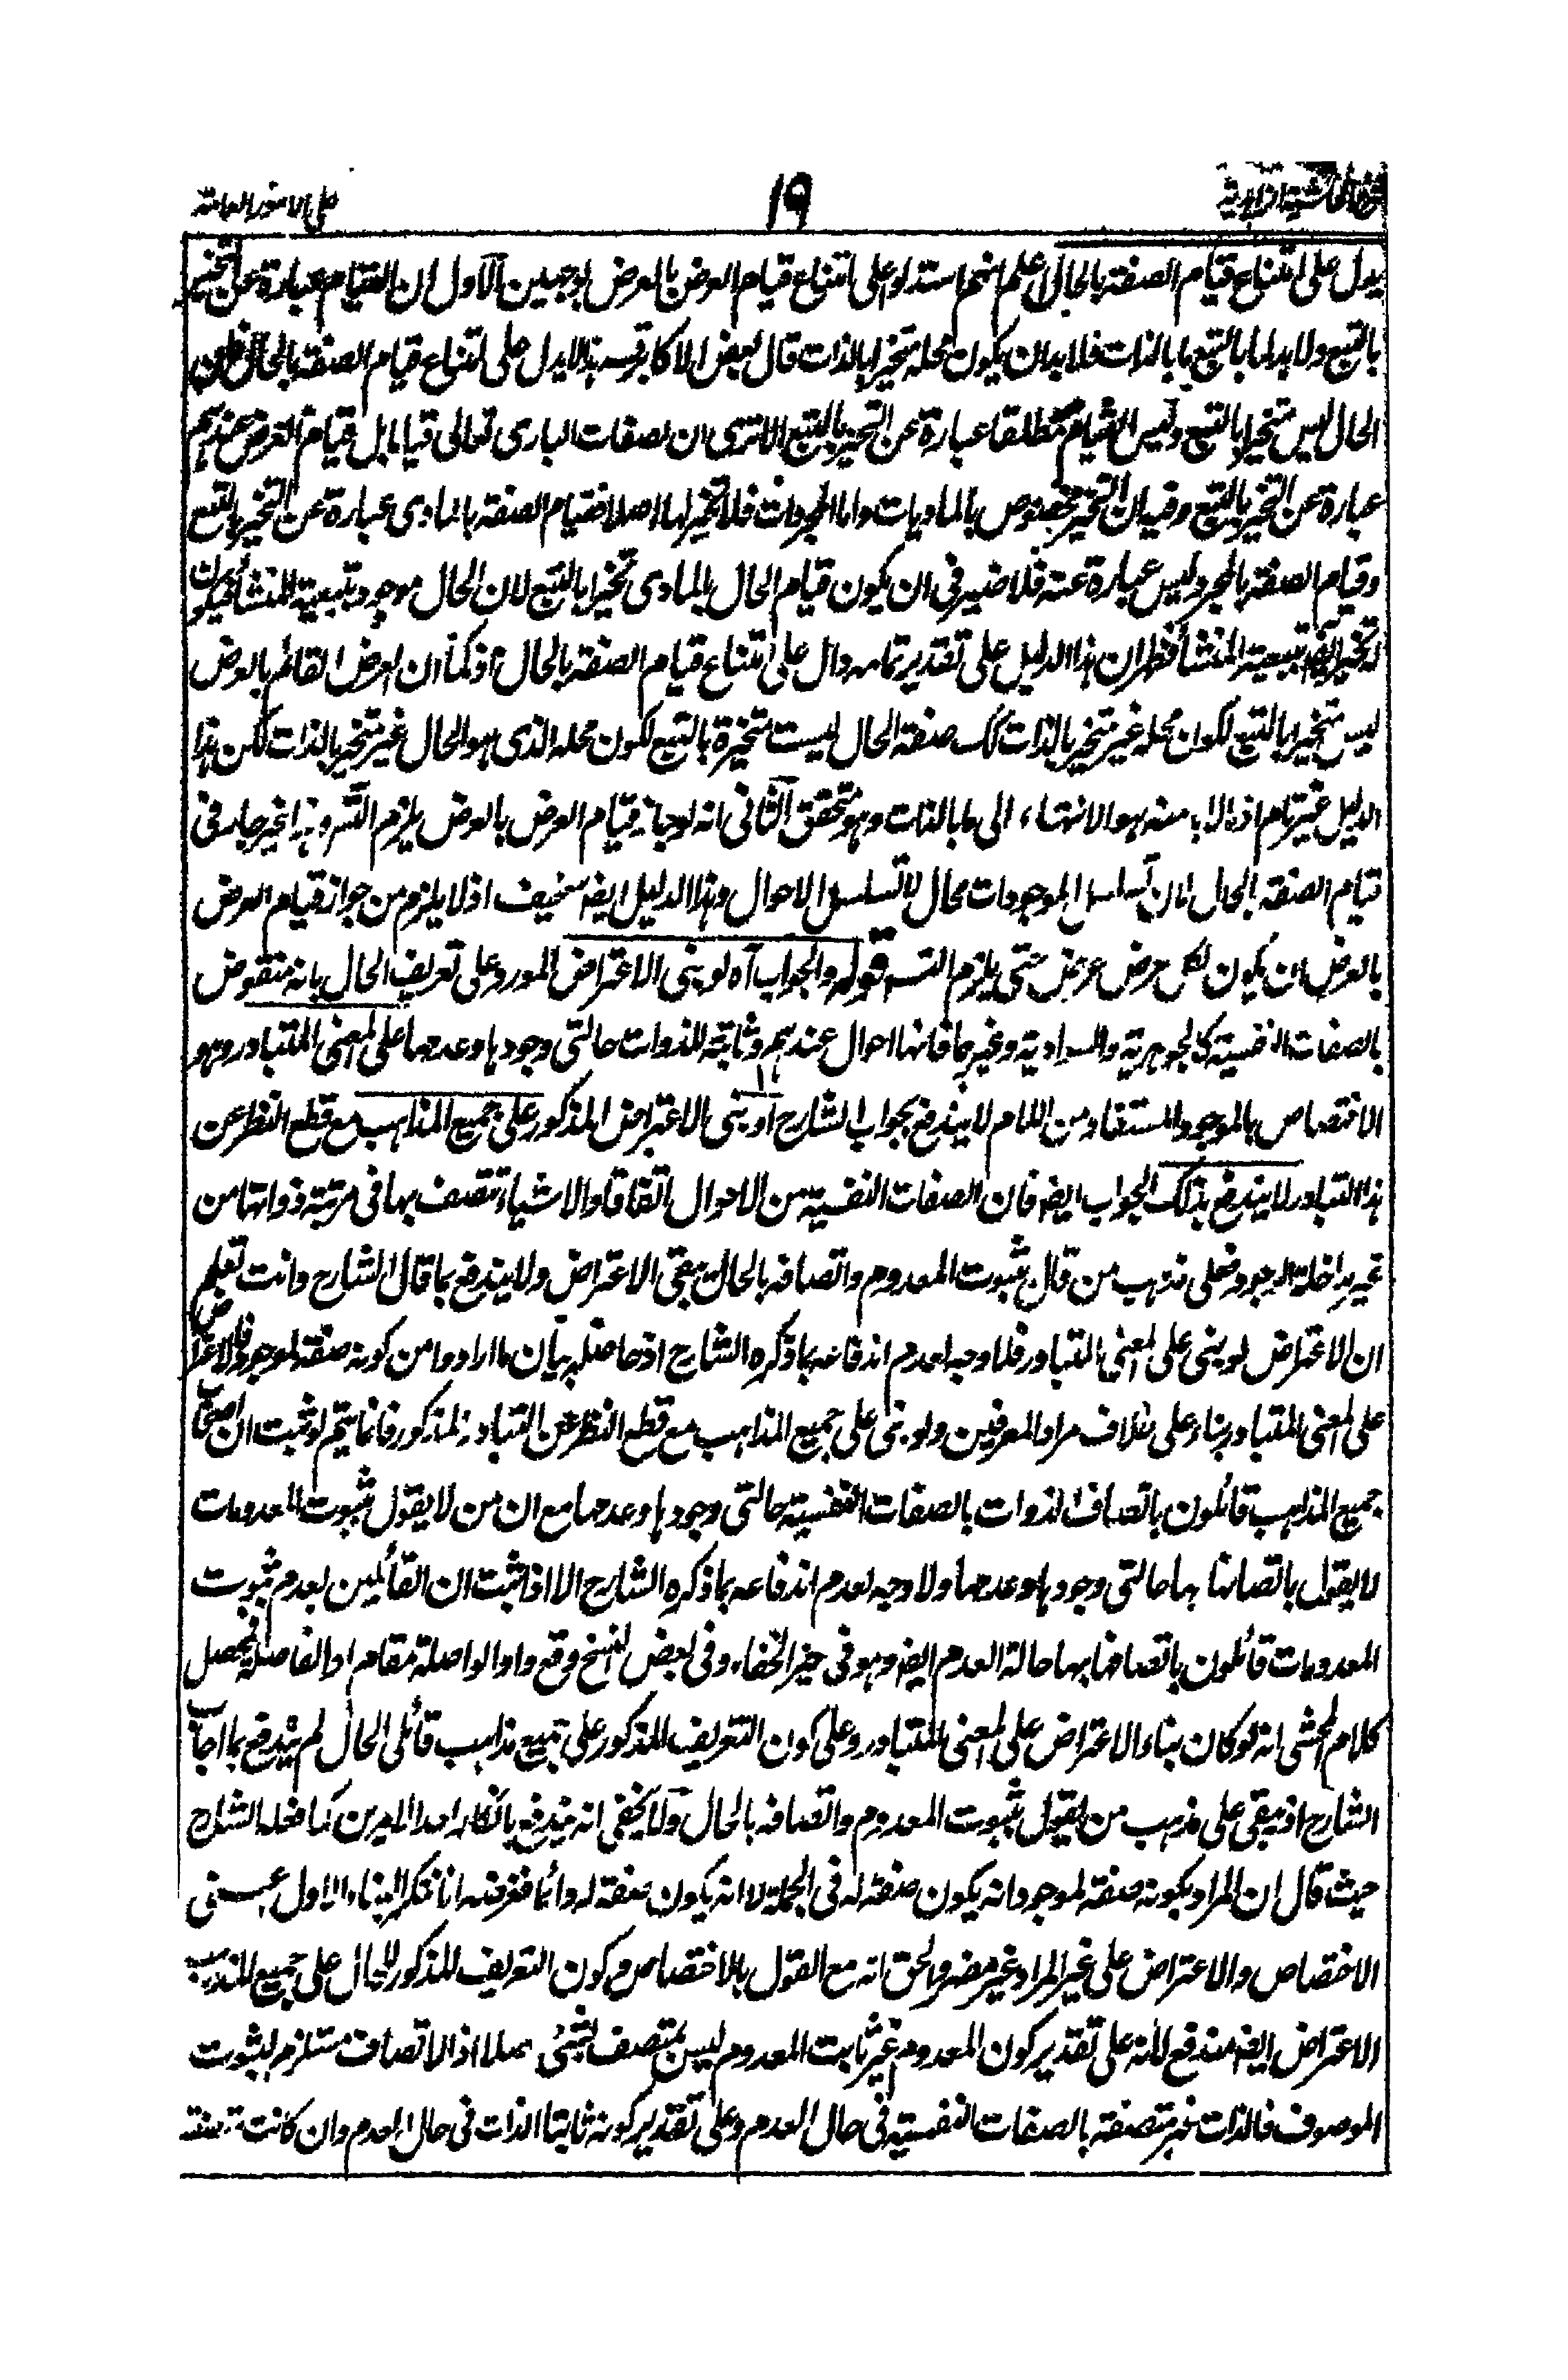 على الامور العامة
١٩
يدل على امتناع قيام الصفة بالحال اعلم انهم استدلوا على امتناع قيام العرض بالعرض لوجهين الاول ان القيام عبارة عن التحيز
بالتبع ولا بد لما بالتبع مما بالذات فلا بد ان يكون محله متحيزا بالذات قال بعض الاكابر قد هذا لا يدل على امتناع قيام الصفة بالحال فان
الحال ليس متحيزا بالتبع وليس القيام مطلقا عبارة عن التحيز بالتبع الا ترى ان لصفات البارى تعالى قياما بل قيام العرض عندهم
عبارة عن التحيز بالتبع وفيه ان التحيز مخصوص بالماديات واما المجردات فلا تحيز لها اصلا فقيام الصفة بالمادى عبارة عن التحيز بالتبع
وقيام الصفة بالمجرد ليس عبارة عنه فلا ضير فى ان يكون قيام الحال بالمادى تحيزا بالتبع لان الحال موجود بتبعية المنشأ فيكون
له تحيز ايضا بتبعية المنشأ فظهر ان هذا الدليل على تقدير تمامه دال على امتناع قيام الصفة بالحال اذ كما ان العرض القائم بالعرض
ليس متحيزا بالتبع لكون محله غير متحيز بالذات كك صفة الحال ليست متحيزة بالتبع لكون محله الذى هو الحال غير متحيز بالذات لكن هذا
الدليل غير تام اذ ما لا بد منه هو الانتهاء الى ما بالذات وهو متحقق الثانى انه لو جاز قيام العرض بالعرض يلزم التسـ وهذا غير جار فى
قيام الصفة بالحال لان تسلسل الموجودات محال لا تسلسل الاحوال وهذا الدليل ايضـ سخيف اذ لا يلزم من جواز قيام العرض
بالعرض ان يكون لكل عرض عرض حتى يلزم التسـ قوله والجواب آه لو بنى الاعتراض المورد على تعريف الحال بانه منقوض
بالصفات النفسية كالجوهرية والسوادية وغيرهما فانها احوال عندهم وثابتة للذوات حالتى وجودها وعدمها على المعنى المتبادر وهو
الاختصاص بالموجود المستفاد من اللام لا يندفع بجواب الشارح او بنى الاعتراض المذكور على جميع المذاهب مع قطع النظر عن
هذا التبادر لا يندفع بذلك الجواب ايضـ فان الصفات النفسية من الاحوال اتفاقا والاشياء تتصف بها فى مرتبة ذواتها من
غير مداخلة الوجود فعلى مذهب من قال بثبوت المعدوم واتصافه بالحال يبقى الاعتراض ولا يندفع بما قال الشارح وانت تعلم
ان الاعتراض لو بنى على المعنى المتبادر فلا وجه لعدم اندفاعه بما ذكره الشارح اذ حاصله بيان ما ارادوا من كونه صفة لموجود فالاعتراض
على المعنى المتبادر بناء على خلاف مراد المعرفين ولو بنى على جميع المذاهب مع قطع النظر عن التبادر المذكور فانما يتم لو ثبت ان اصحاب
جميع المذاهب قائلون باتصاف الذوات بالصفات النفسية حالتى وجودها وعدمها مع ان من لا يقول بثبوت المعدومات
لا يقول باتصافها بها حالتى وجودها وعدمها ولا وجه لعدم اندفاعه بما ذكره الشارح الا اذا ثبت ان القائلين بعدم ثبوت
المعدومات قائلون باتصافها بها حالة العدم ايضـ وهو فى حيز الخفاء وفى بعض النسخ وقع واو الواصلة مقام او الفاصلة فحصل
كلام المحشى انه لو كان بناء الاعتراض على المعنى المتبادر وعلى كون التعريف المذكور على جميع مذاهب قائلى الحال لم يندفع بما اجاب
الشارح اذ يبقى على مذهب من يقول بثبوت المعدوم واتصافه بالحال ولا يخفى انه يندفع بانكار احد الامرين كما فعله الشارح
حيث قال ان المراد بكونه صفة لموجود انه يكون صفة له فى الجملة لا انه يكون صفة له دائما فغرضه انا ننكر البناء الاول اعنى
الاختصاص والاعتراض على غير المراد غير مضر والحق انه مع القول بالاختصاص وكون التعريف المذكور للحال على جميع المذاهب
الاعتراض ايضـ مندفع لانه على تقدير كون المعدوم غير ثابت المعدوم ليس بمتصف بشئ اصلا اذ الاتصاف مستلزم لثبوت
الموصوف فالذات غير متصفة بالصفات النفسية فى حال العدم وعلى تقدير كونه ثابتا الذات فى حال العدم وان كانت متصفة